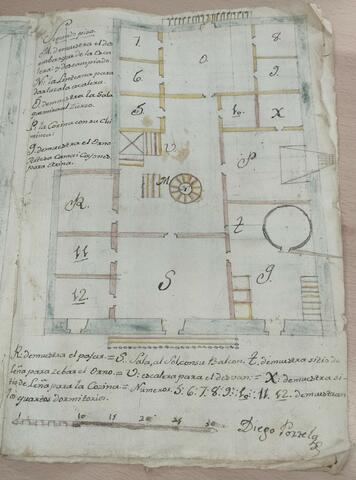 Segundo piso
M. demuestra el des
embarque de la esca
lera: y descampiado.
N. la Linterna para
dar luz a la escalera.
O. demuestra la Sala
que mira al Zierzo.
P. la Cozina con su Chi
minea:
g. demuestra el Orno
para Cozina.
7.
8.
O.
6.
9.
5.
10.
X
V
P
M
N
R.
t
11
12.
S
g.
R: demuestra el pajar = S. Sala, al Sol pon su Balcon. t. demuestra sitio de
Leña para zebar el Orno. = V: escalera para el desvan: = X: demuestra si-
tio de Leña para la Cozina = Numeros. 5: 6: 7: 8: 9: 10: 11. 12. demuestran
los quartos dormitorios.
1 5 10 15 20 25 30
Diego